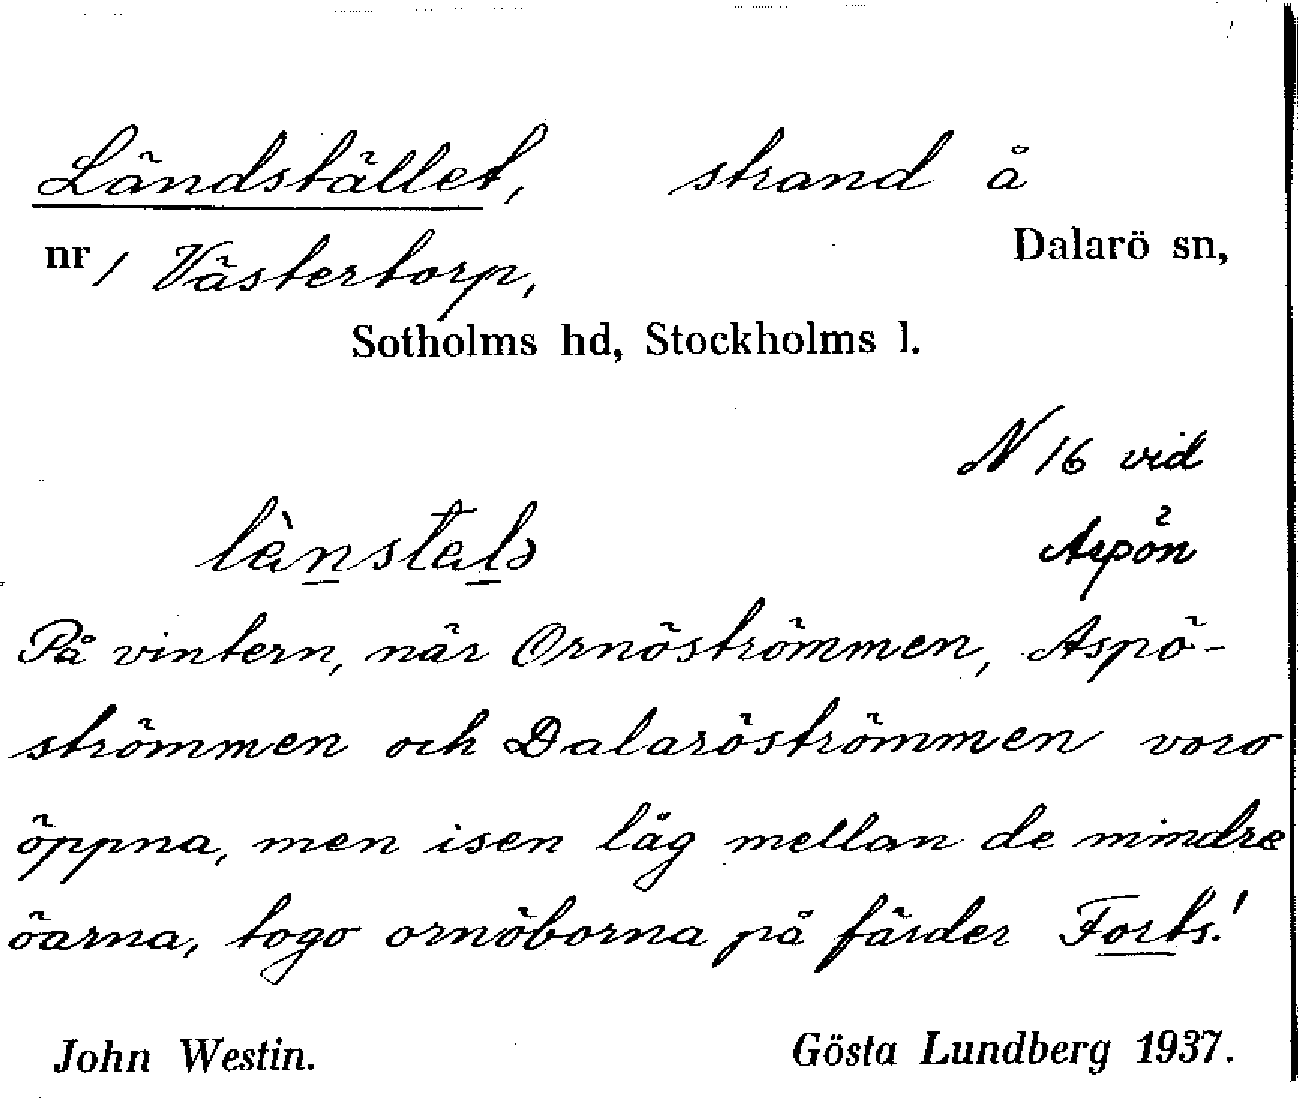 Ländstället, strand å
nr 1 Västertorp, Dalarö sn,
Sotholms hd, Stockholms l.
N 16 vid
Aspön
På vintern, när Ornöströmmen, Aspö-
strömmen och Dalaröströmmen voro
öppna, men isen låg mellan de mindre
öarna, togo ornöborna på färder Forts!
John Westin. Gösta Lundberg 1937.